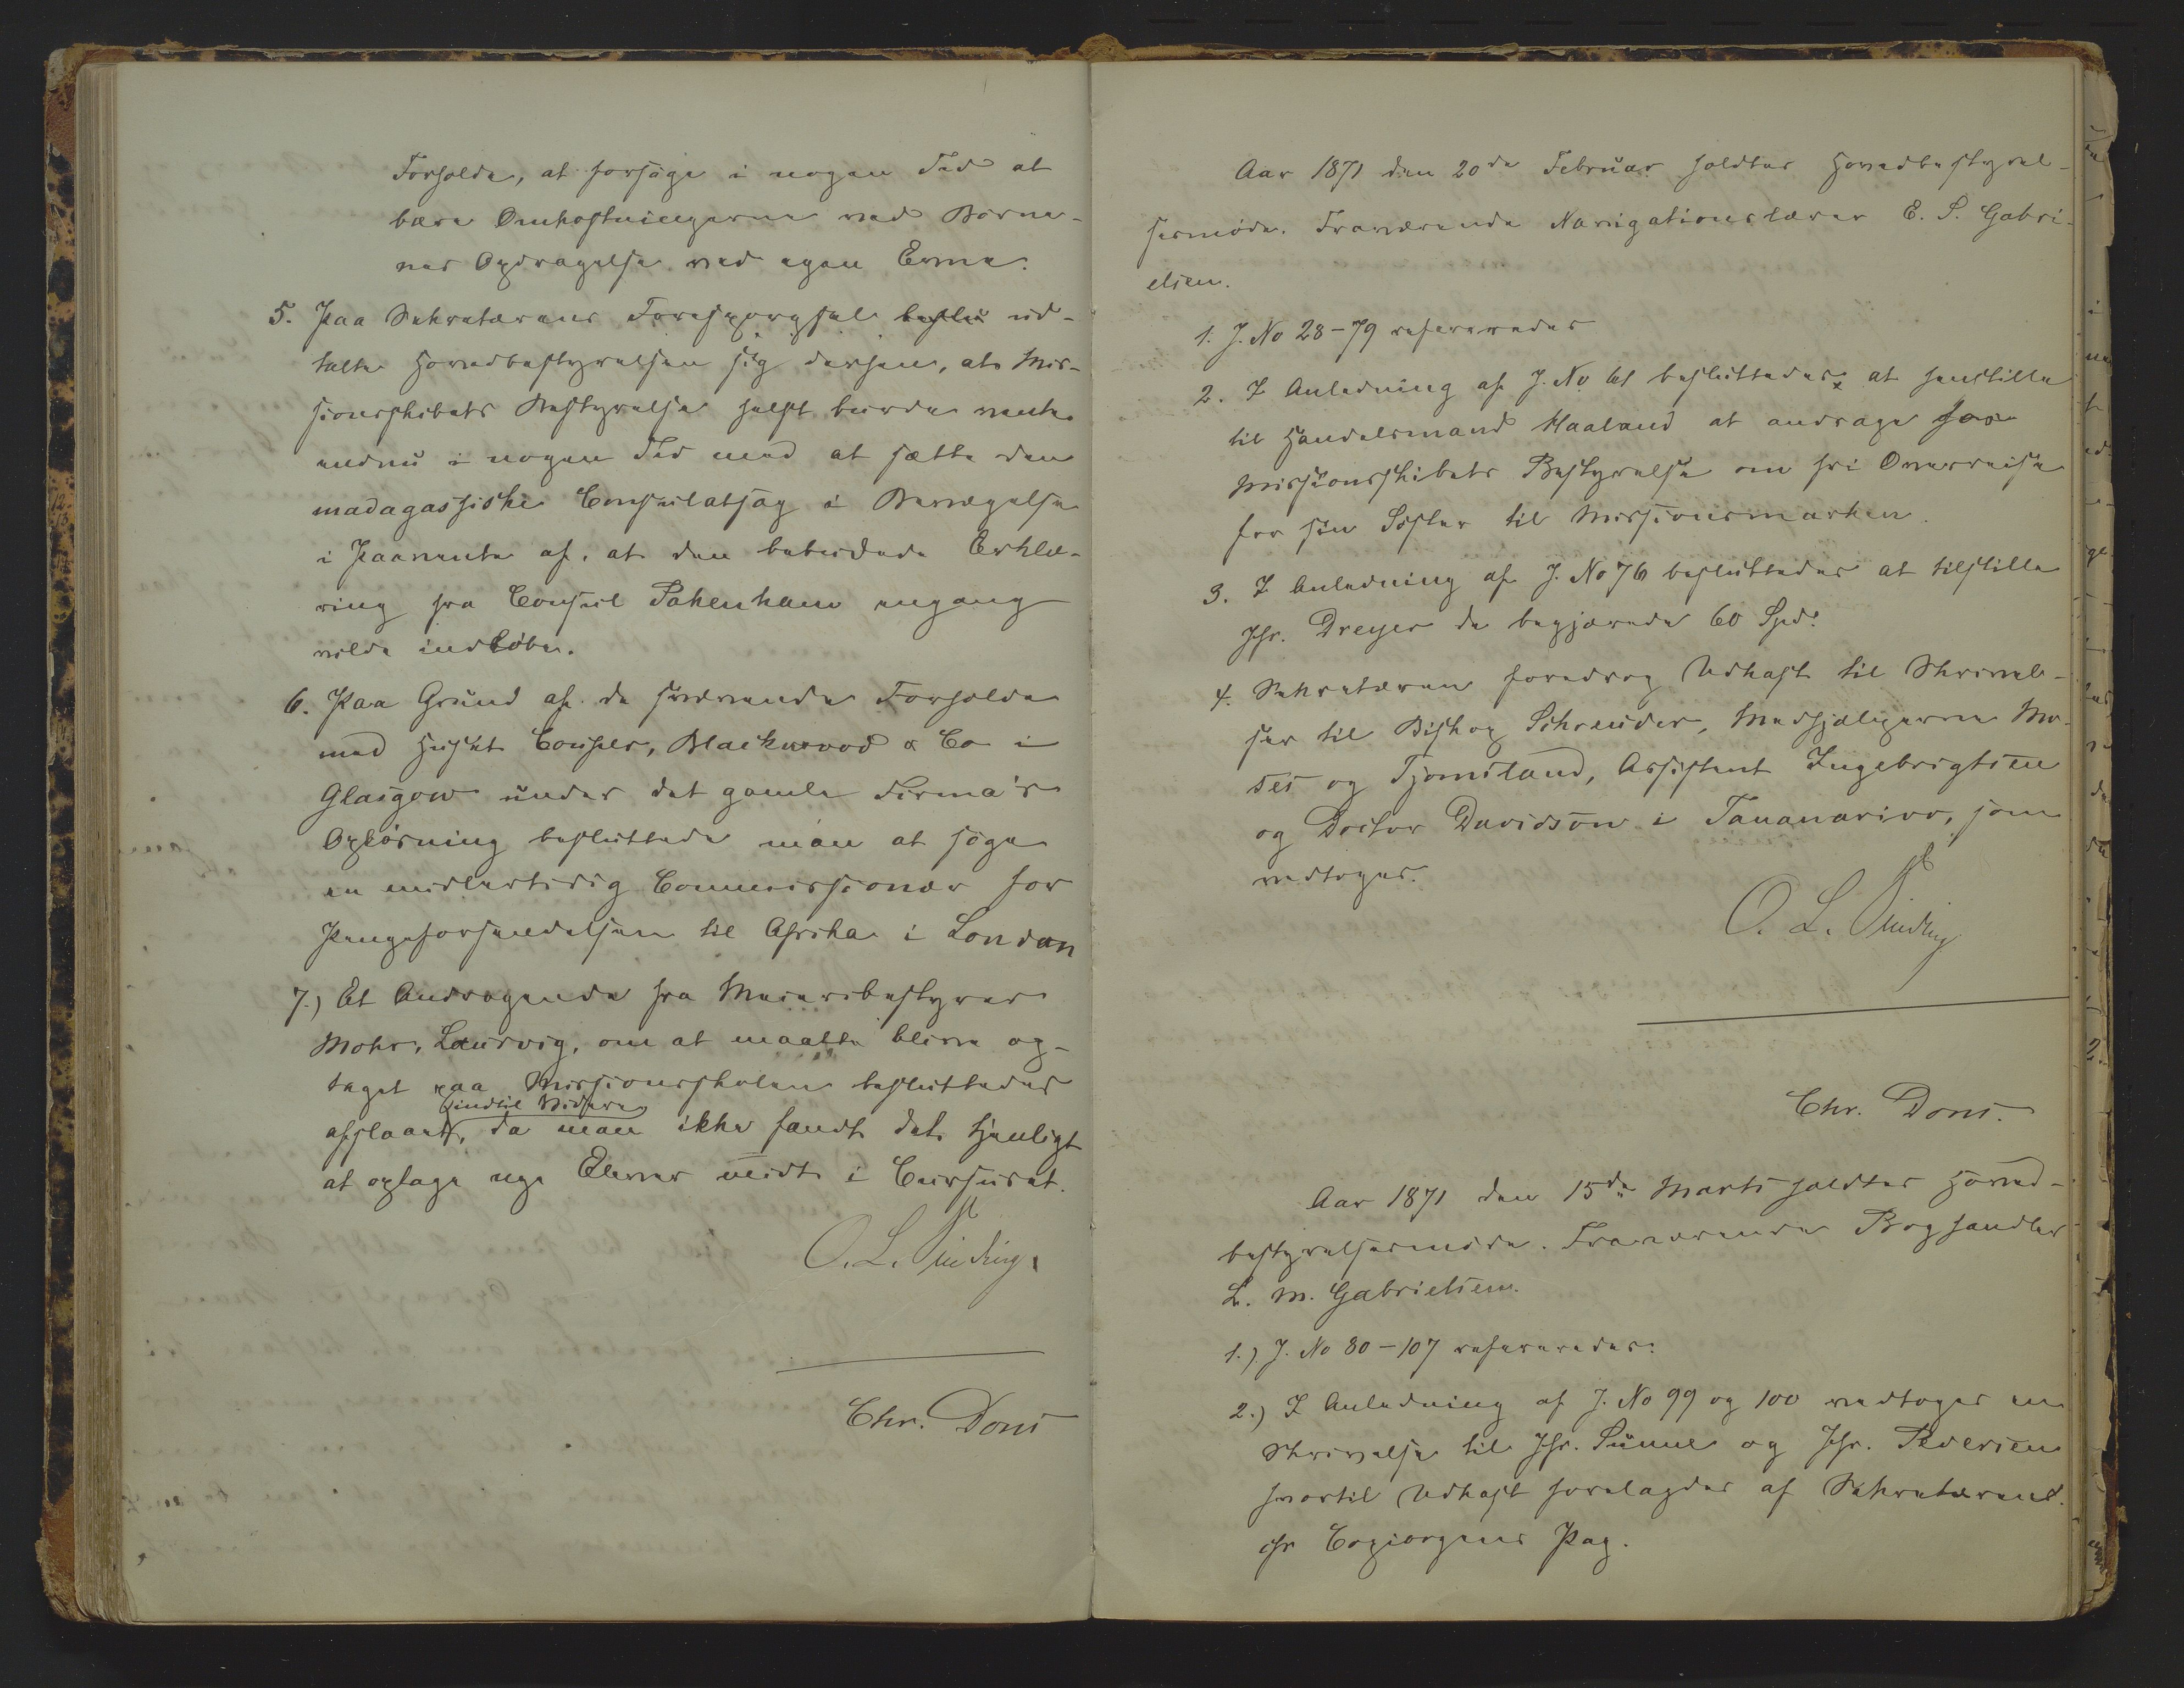 Forholde, at forsøge i nogen Tid at
bære Omkostningerne ved Børne-
nes Opdragelse ved egen Evne.
5. Paa Sekretærens Forespørgsel beslu ud-
talte Hovedbestyrelsen sig derhen, at Mis-
sionsskibets Bestyrelse helst burde vente
endnu i nogen Tid med at sætte den
madagassiske Consulatsag i Bevægelse
i Paavente af, at den bebudede Erklæ-
ring fra Consul Pakenham engang
vilde indløbe.
6. Paa Grund af de svævende Forholde
med Huset Couper, Blackwood & Co i
Glasgow under det gamle Firma's
Opløsning besluttede man at søge
en midlertidig Commissionær for
Pengeforsendelsen til Afrika i London
7.) Et Andragende fra Meieribestyrer
Mohr, Laurvig, om at maatte blive op-
taget paa Missionsskolen besluttedes
indtil Videre
afslaaet, da man ikke fandt det tjenligt
at optage nye Elever midt i Cursuset.
O. L. Sinding.
Chr. Dons
Aar 1871 den 20de Februar holdtes Hovedbestyrel-
sesmøde. Fraværende Navigationslærer E. S. Gabri-
elsen.
1. J. No 28-79 refereredes
2. I Anledning af J. No 61 besluttedes at henstille
til Handelsmand Haaland at andrage hos
Missionsskibets Bestyrelse om fri Overreise
for sin Søster til Missionsmarken.
3. I Anledning af J. No 76 besluttedes at tilstille
Hr. Dreyer de begjærede 60 Spd.
4. Sekretæren foredrog Udkast til Skrivel-
ser til Biskop Schreuder, Medhjælperne Mo-
ses og Tjomsland, Assistent Ingebrigtsen
og Doctor Davidson i Tananarivo, som
vedtoges.
O. L. Sinding
Chr. Dons.
Aar 1871 den 15de Marts holdtes Hoved-
bestyrelsesmøde. Fraværende Boghandler
L. M. Gabrielsen.
1.) J. No 80-107 refereredes.
2.) I Anledning af J. No 99 og 100 vedtoges en
Skrivelse til Hr. Sunne og Hr. Pedersen
hvortil Udkast forelagdes af Sekretæren.
cfr Copiorgens Pag.